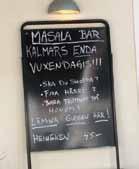 MASALA BAR
KALMARS ENDA
VUXENDAGIS!!!
• SKA DU SHOPPA?
• FIKA HÄRET?
• BARA TRÖTT PÅ
HONOM?
LÄMNA GUBBEN HÄR!
HEINEKEN 45:-